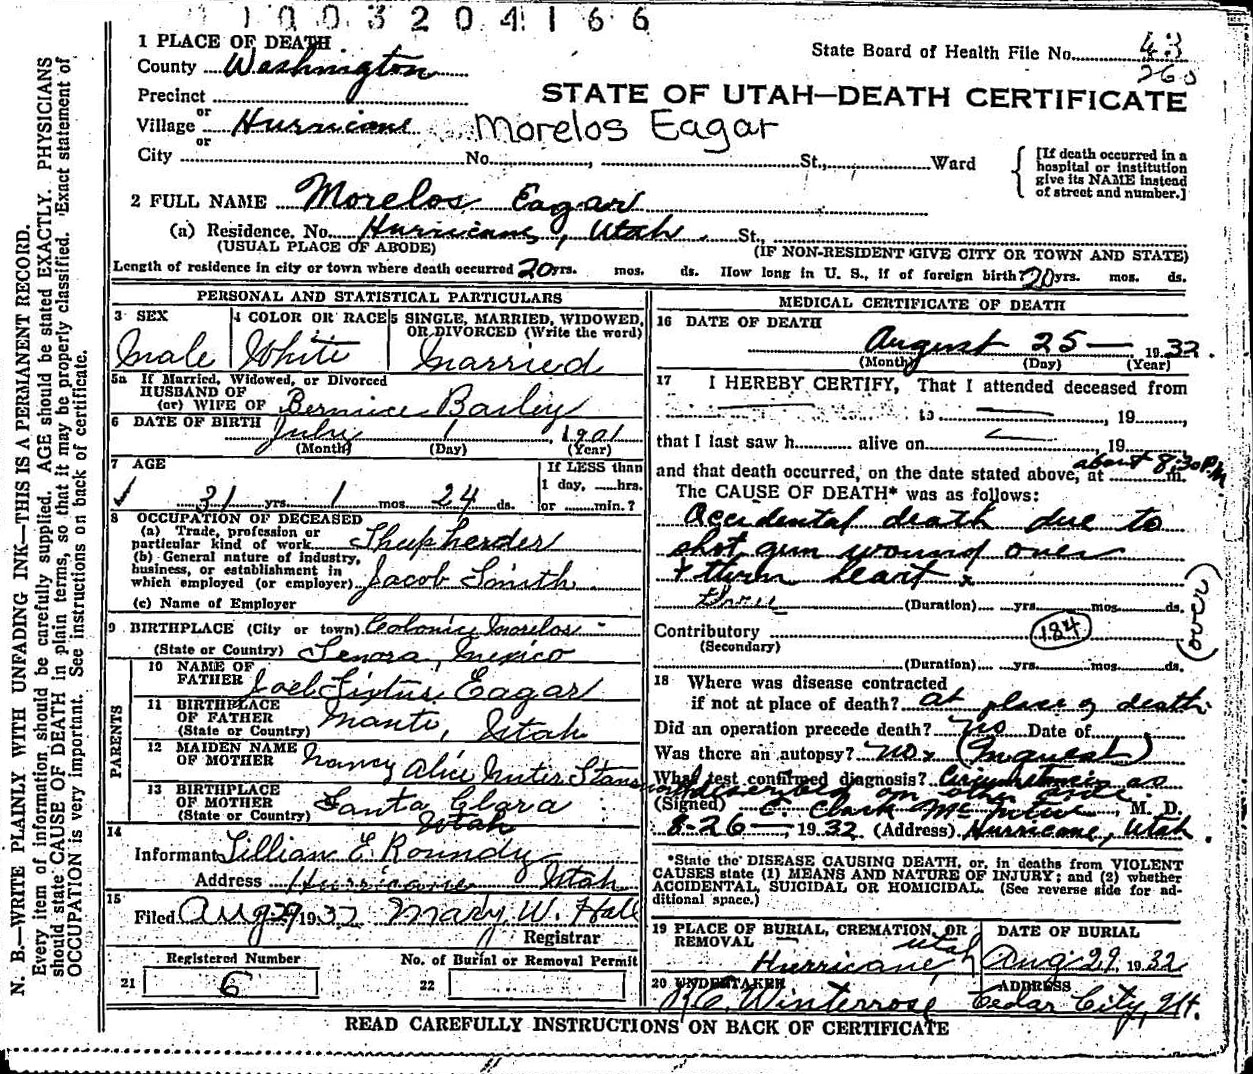 1003204166
1 PLACE OF DEATH
State Board of Health File No. 43
260
County Washington
STATE OF UTAH—DEATH CERTIFICATE
Precinct
or
Village Hurricane Morelos Eagar
or
City No. , St., Ward
[If death occurred in a hospital or institution give its NAME instead of street and number.]
2 FULL NAME Morelos Eagar
(a) Residence. No. Hurricane, Utah. St.,
(USUAL PLACE OF ABODE) (IF NON-RESIDENT GIVE CITY OR TOWN AND STATE)
Length of residence in city or town where death occurred 20 yrs. mos. ds. How long in U. S., if of foreign birth? 20 yrs. mos. ds.
PERSONAL AND STATISTICAL PARTICULARS
3 SEX
Male
4 COLOR OR RACE
White
5 SINGLE, MARRIED, WIDOWED, OR DIVORCED (Write the word)
Married
5a If Married, Widowed, or Divorced
HUSBAND OF
(or) WIFE OF Bernice Bailey
6 DATE OF BIRTH July 1, 1901
(Month) (Day) (Year)
7 AGE
31 yrs. 1 mos. 24 ds.
If LESS than
1 day, hrs.
or min.?
8 OCCUPATION OF DECEASED
(a) Trade, profession or
particular kind of work Sheepherder
(b) General nature of industry,
business, or establishment in
which employed (or employer) Jacob Smith
(c) Name of Employer
9 BIRTHPLACE (City or town) Colonia Morelos
(State or Country) Senora, Mexico
PARENTS
10 NAME OF
FATHER Joel Sixtus Eagar
11 BIRTHPLACE
OF FATHER Manti, Utah
(State or Country)
12 MAIDEN NAME
OF MOTHER Nancy Alice
13 BIRTHPLACE
OF MOTHER Santa Clara
(State or Country) Utah
14
Informant Lillian E. Roundy
Address Hurricane Utah
15
Filed Aug 29 1932 Mary W. Hall
Registrar
Registered Number
21 6
No. of Burial or Removal Permit
22
MEDICAL CERTIFICATE OF DEATH
16 DATE OF DEATH
August 25— 1932.
(Month) (Day) (Year)
17 I HEREBY CERTIFY, That I attended deceased from
to , 19 ,
that I last saw h alive on , 19
and that death occurred, on the date stated above, at about 8:30 P.M. m.
The CAUSE OF DEATH* was as follows:
Accidental death due to
shot gun wound over
+ thru heart x
thru (Duration) yrs. mos. ds.
Contributory 184
(Secondary)
(over)
(Duration) yrs. mos. ds.
18 Where was disease contracted
if not at place of death? At place of death.
Did an operation precede death? No Date of
Was there an autopsy? no x (Inquest)
What test confirmed diagnosis? Circumstances as
described on other side
(Signed) C. Clark M. D.
8-26— 1932 (Address) Hurricane, Utah.
*State the DISEASE CAUSING DEATH, or, in deaths from VIOLENT
CAUSES state (1) MEANS AND NATURE OF INJURY; and (2) whether
ACCIDENTAL, SUICIDAL OR HOMICIDAL. (See reverse side for ad-
ditional space.)
19 PLACE OF BURIAL, CREMATION, OR
REMOVAL
Hurricane, Utah
DATE OF BURIAL
Aug 29, 1932
20 UNDERTAKER
R.C. Winterrose
ADDRESS
Cedar City, Ut.
READ CAREFULLY INSTRUCTIONS ON BACK OF CERTIFICATE
N. B.—WRITE PLAINLY WITH UNFADING INK—THIS IS A PERMANENT RECORD.
Every item of information should be carefully supplied. AGE should be stated EXACTLY. PHYSICIANS
should state CAUSE OF DEATH in plain terms, so that it may be properly classified. Exact statement of
OCCUPATION is very important. See instructions on back of certificate.